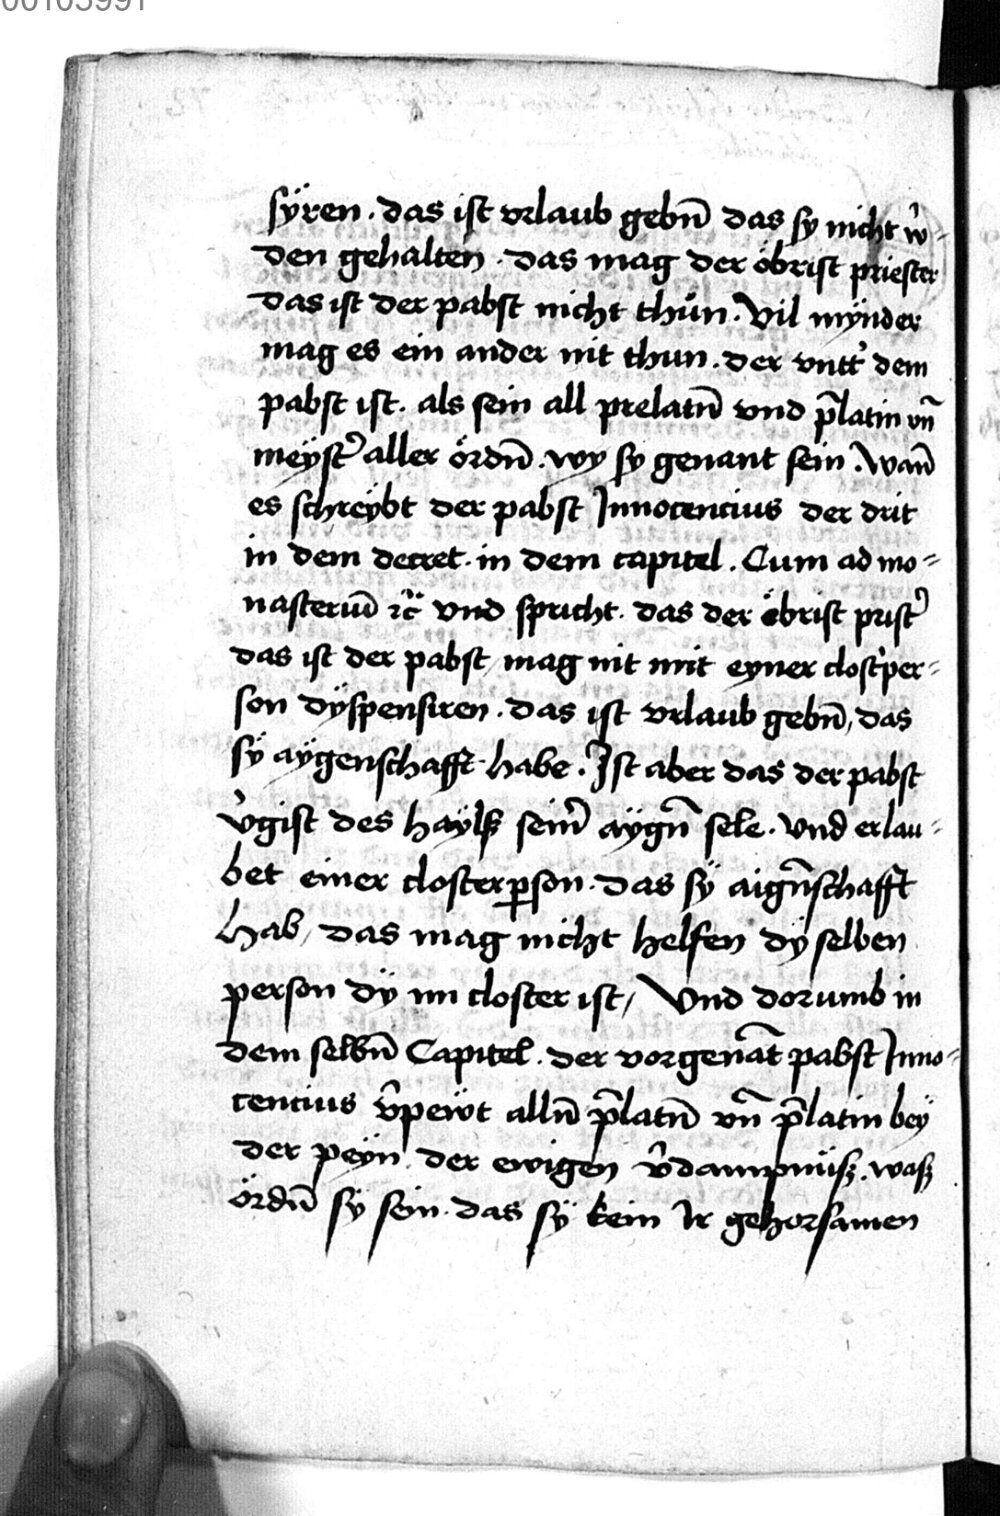 00103991
sÿren. das ist vrlaub gebn̄ das sy nicht w̓-
den gehalten. das mag der öbrist priester
das ist der pabst nicht thůn. Vil mÿnder
mag es ein ander nit thun. der vntt̓ dem
pabst ist. als sein all prelatn̄ vnd p̄latin vn̄
meÿst̓ aller ördn̄. wy sy genant sein. Wan̄
es schreÿbt der pabst Innocencius der drit
in dem decret. in dem capitel. Cum ad mo-
nasteriū ⁊c̄ vnd spricht. das der öbrist prist̓
das ist der pabst, mag nit mit eyner clost̓per-
son dÿspensiren. das ist vrlaub gebn̄, das
sÿ aÿgenschafft habe. Ist aber das der pabst
v̓gist des haÿls̈ seim̄ aÿgn̄ sele. Vnd erlau-
bet einer closterꝑson. das sÿ aign̄schafft
hab, das mag nicht helfen dÿ selben
person dÿ im closter ist, Vnd dorumb in
dem selbn̄ Capitel. der vorgenāt pabst Inno-
cencius v̓pewt alln̄ p̄latn̄ vn̄ p̄latin beÿ
der peÿn der ewigen v̓dampnüß. waß
ördn̄ sÿ sein. das sÿ kein Ir gehorsamen